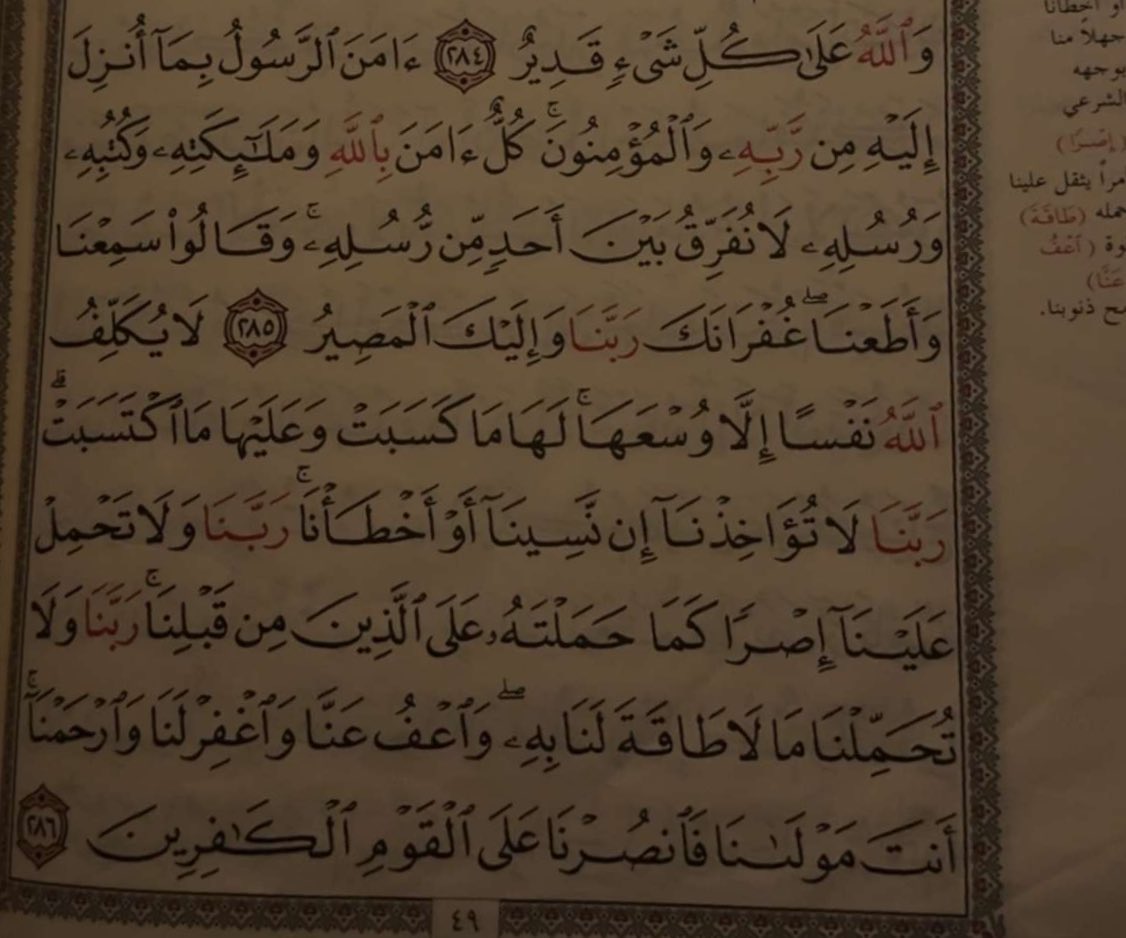 وَٱللَّهُ عَلَىٰ كُلِّ شَىْءٍ قَدِيرٌ ٢٨٤ ءَامَنَ ٱلرَّسُولُ بِمَآ أُنزِلَ
إِلَيْهِ مِن رَّبِّهِۦ وَٱلْمُؤْمِنُونَ ۚ كُلٌّ ءَامَنَ بِٱللَّهِ وَمَلَـٰٓئِكَتِهِۦ وَكُتُبِهِۦ
وَرُسُلِهِۦ لَا نُفَرِّقُ بَيْنَ أَحَدٍ مِّن رُّسُلِهِۦ ۚ وَقَالُوا۟ سَمِعْنَا
وَأَطَعْنَا ۖ غُفْرَانَكَ رَبَّنَا وَإِلَيْكَ ٱلْمَصِيرُ ٢٨٥ لَا يُكَلِّفُ
ٱللَّهُ نَفْسًا إِلَّا وُسْعَهَا ۚ لَهَا مَا كَسَبَتْ وَعَلَيْهَا مَا ٱكْتَسَبَتْ ۗ
رَبَّنَا لَا تُؤَاخِذْنَآ إِن نَّسِينَآ أَوْ أَخْطَأْنَا ۚ رَبَّنَا وَلَا تَحْمِلْ
عَلَيْنَآ إِصْرًا كَمَا حَمَلْتَهُۥ عَلَى ٱلَّذِينَ مِن قَبْلِنَا ۚ رَبَّنَا وَلَا
تُحَمِّلْنَا مَا لَا طَاقَةَ لَنَا بِهِۦ ۖ وَٱعْفُ عَنَّا وَٱغْفِرْ لَنَا وَٱرْحَمْنَآ ۚ
أَنتَ مَوْلَىٰنَا فَٱنصُرْنَا عَلَى ٱلْقَوْمِ ٱلْكَـٰفِرِينَ ٢٨٦
٤٩
أو أخطأنا
جهلاً منا
بوجهه
الشرعي
(إِصْرًا)
يثقل علينا
(طَاقَةَ)
(ٱعْفُ
عَنَّا)
ذنوبنا.